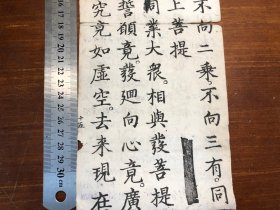 不向二乘不向三有。同
上菩提
同業大衆。相與發菩提
誓願竟。發廻向心竟。廣
究竟如虛空。去來現在
17 18 19 20 21 22 23 24 25 26 27 28 29 30 cm